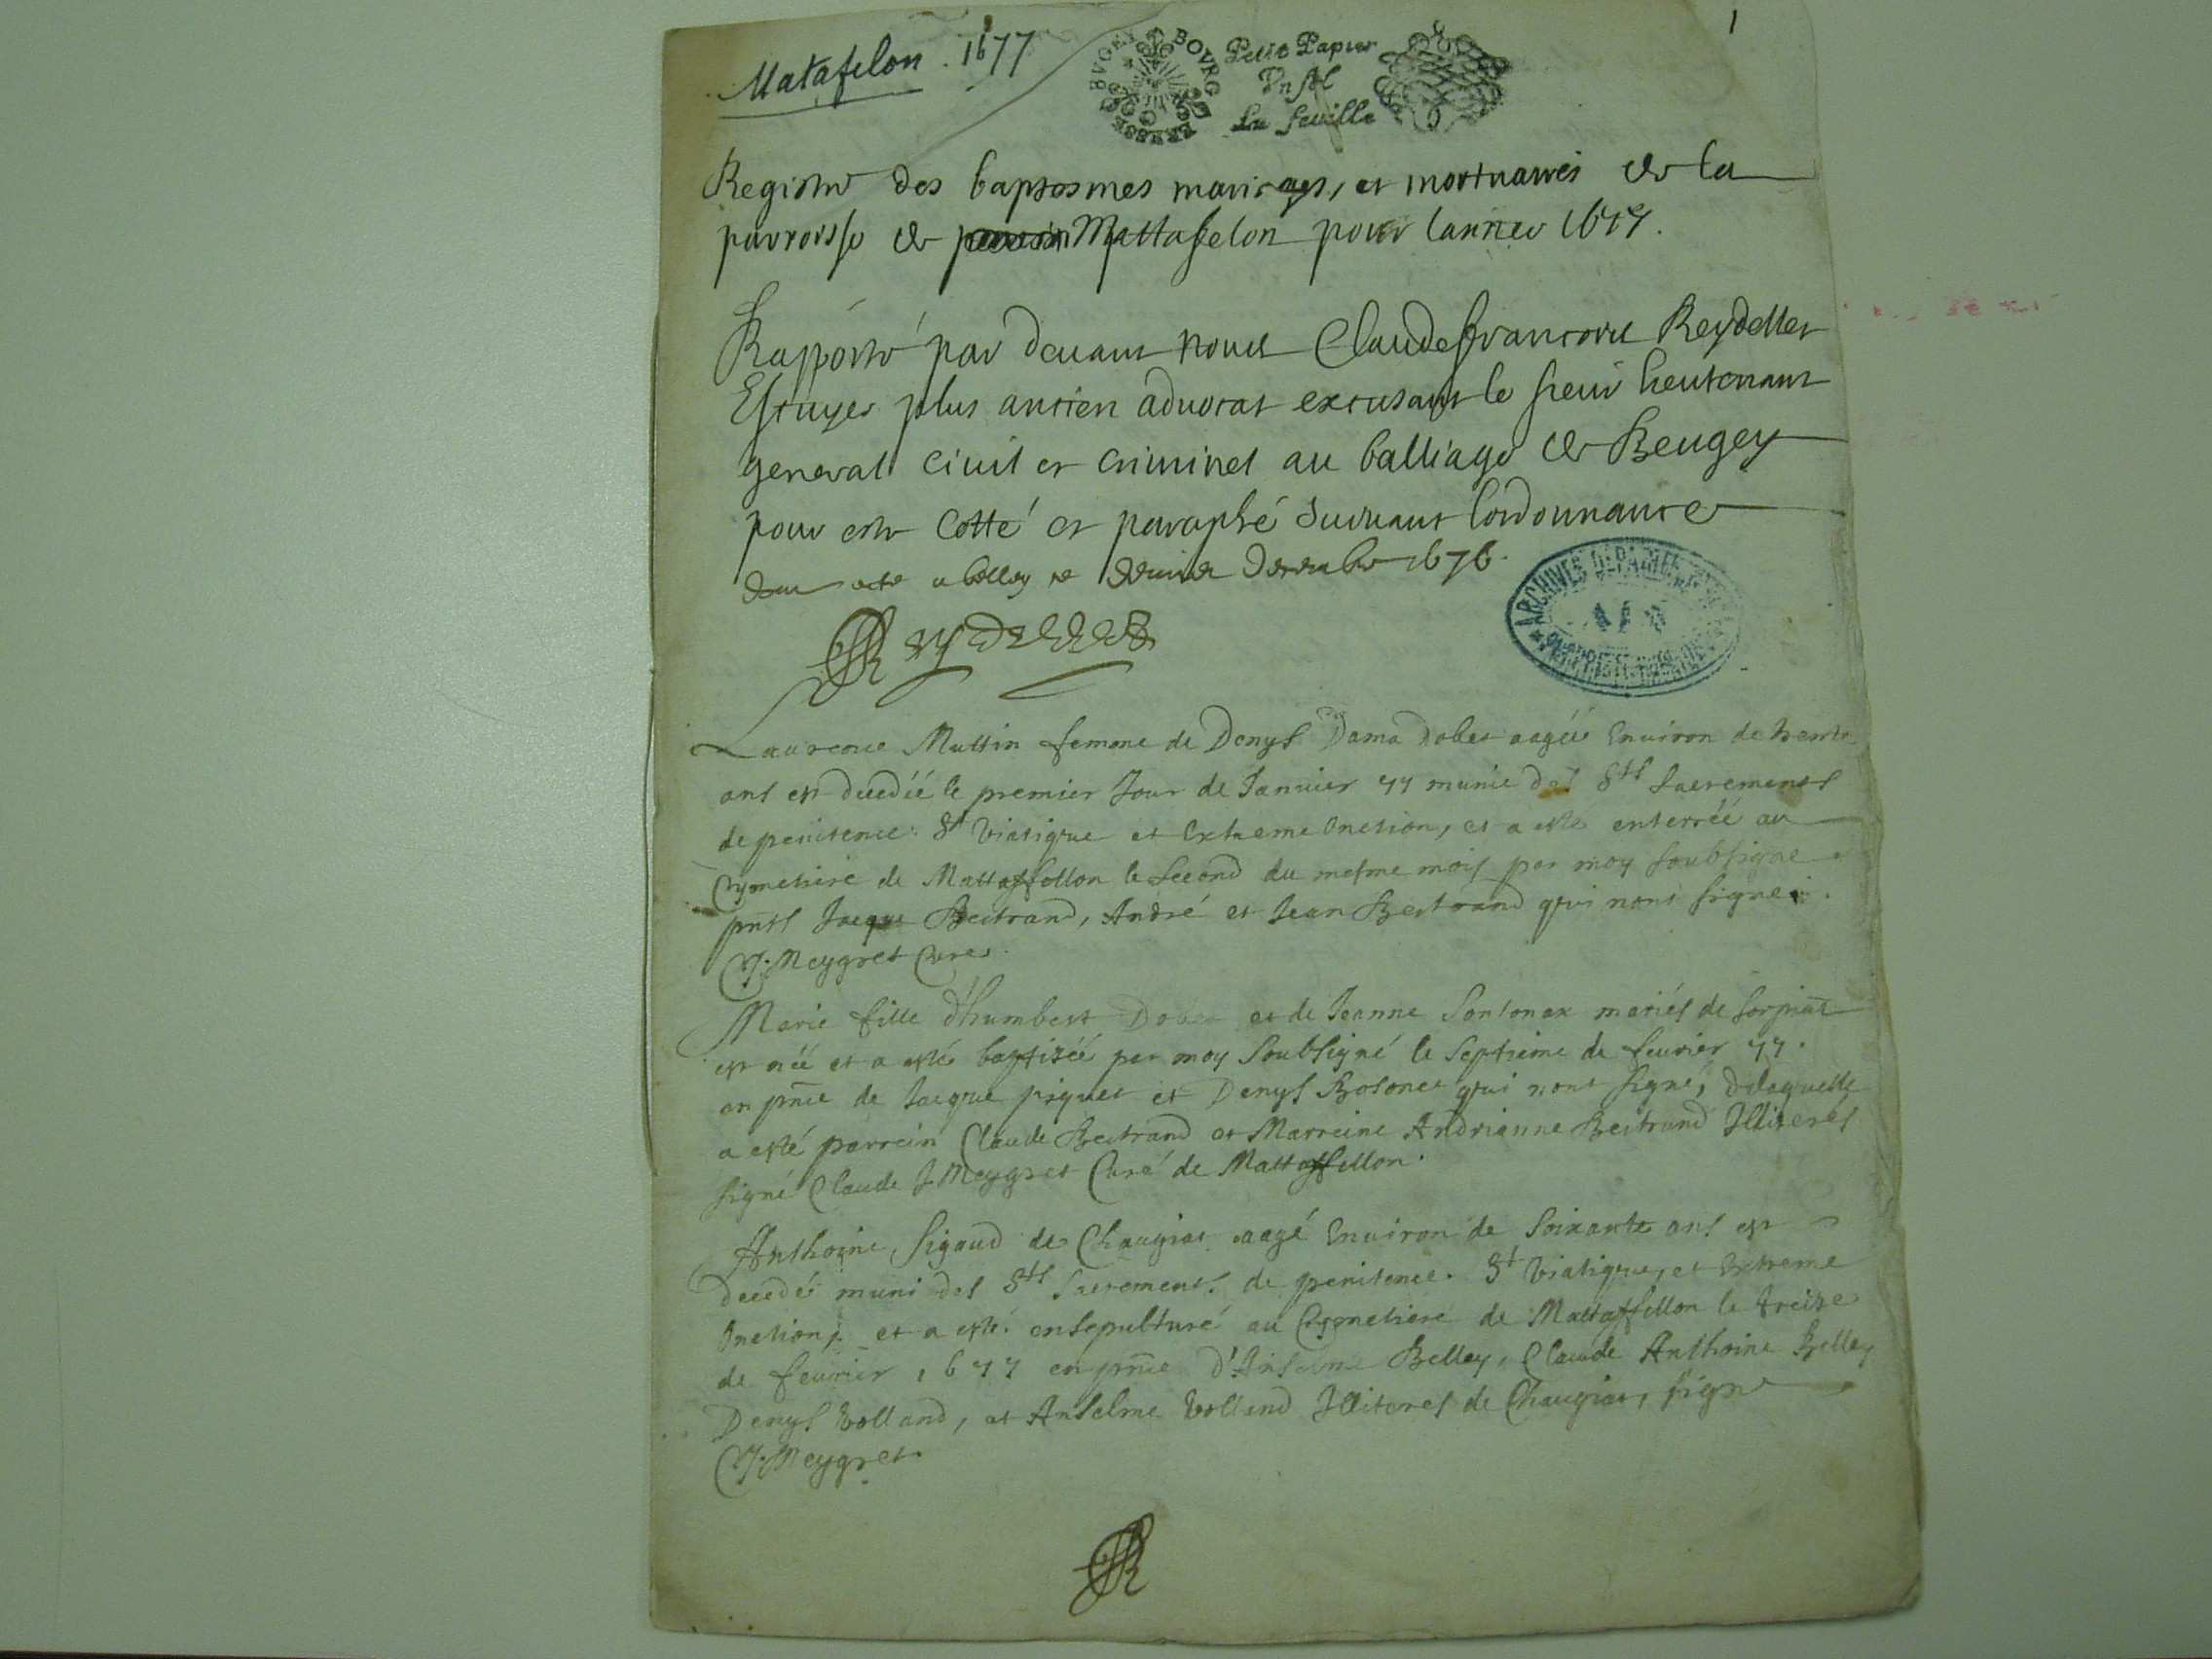 Matafelon . 1677
1
BVGEY BOVRG BRESSE
Petit Papier
Un sol
La feuille
Registre des baptesmes mariages, et mortuaires de la
parroisse de Mattafelon pour lannee 1677.
Rapporté par devant nous Claude francois Reydellet
Escuyer plus ancien advocat excusant le sieur lieutenant
general civil et criminel au balliage de Beugey
pour estre Cotté et paraphé suivant lordonnance
acte a belley ce dernier Decembre 1676.
Reydellet
ARCHIVES DEPARTEM
AIN
Laurence Muttin femme de Denys Dama Dobet aagéé Environ de trente
ans est decedéé le premier Jour de Janvier 77 munie des Sts Sacrements
de penitence. St Viatique et Extreme Onction, et a esté enterréé au
Cymetiere de Mattaffellon le second du mesme mois par moy soubsigné
pnts Jacque Bertrand, André et Jean Bertrand qui nont signé.
C J. Meygret Cure.
Marie fille d'humbert Dobet et de Jeanne Sontonax mariés de Corpiat
est néé et a esté baptizéé par moy Soubsigné le septieme de fevrier 77.
en pnce de Jacque piquet et Denys Bolonet qui nont signé, delaquelle
a esté parrein Claude Bertrand et Marreine Andrianne Bertrand Illiterés
signé Claude J Meygret Curé de Mattaffellon.
Anthoine Sigaud de Chaugiat aagé Environ de Soixante ans est
decedé muni des Sts Sacrements de penitence. St Viatique, et Extreme
Onction, et a esté ensepulturé au Cymetiere de Mattaffellon le treize
de fevrier 1677 en pnce d'Anselme Belley, Claude Anthoine Belley
Denys Volland, et Anselme Volland Illiterés de Chaugiat, signé
C J. Meygret.